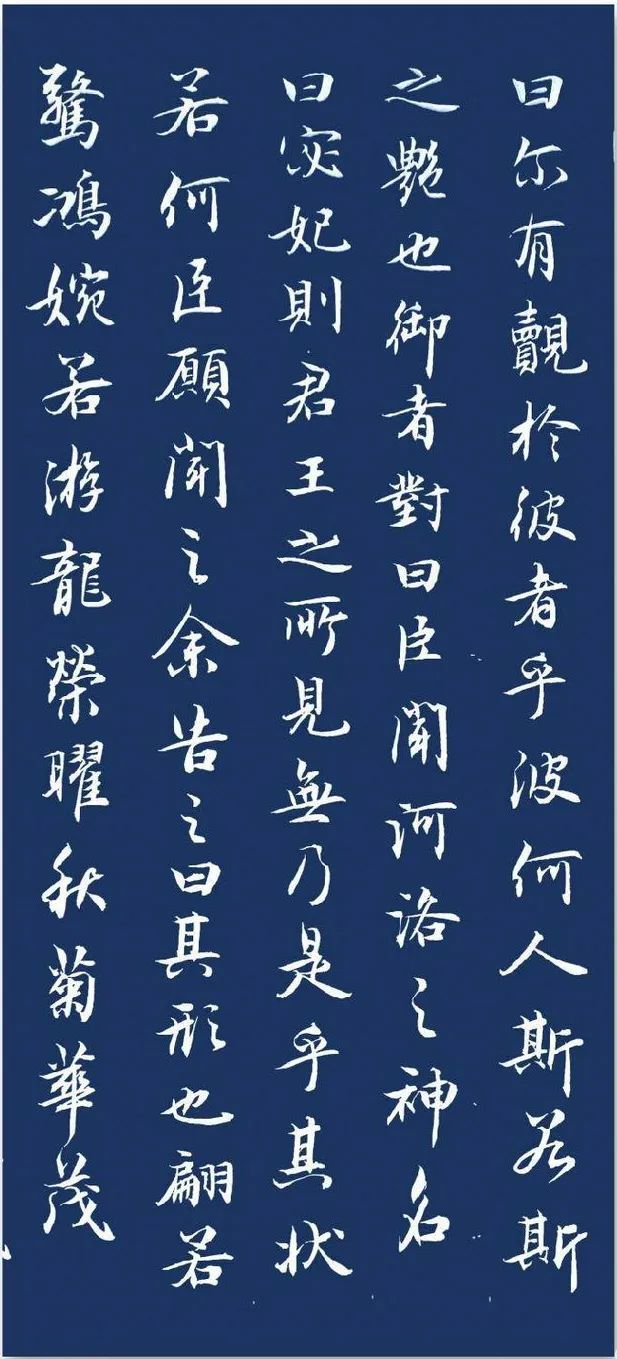 曰尔有覿於彼者乎波何人斯若斯
之艷也御者對曰臣聞河洛之神名
曰宓妃則君王之所見無乃是乎其状
若何臣願聞之余告之曰其形也翩若
驚鴻婉若游龍榮曜秋菊華茂